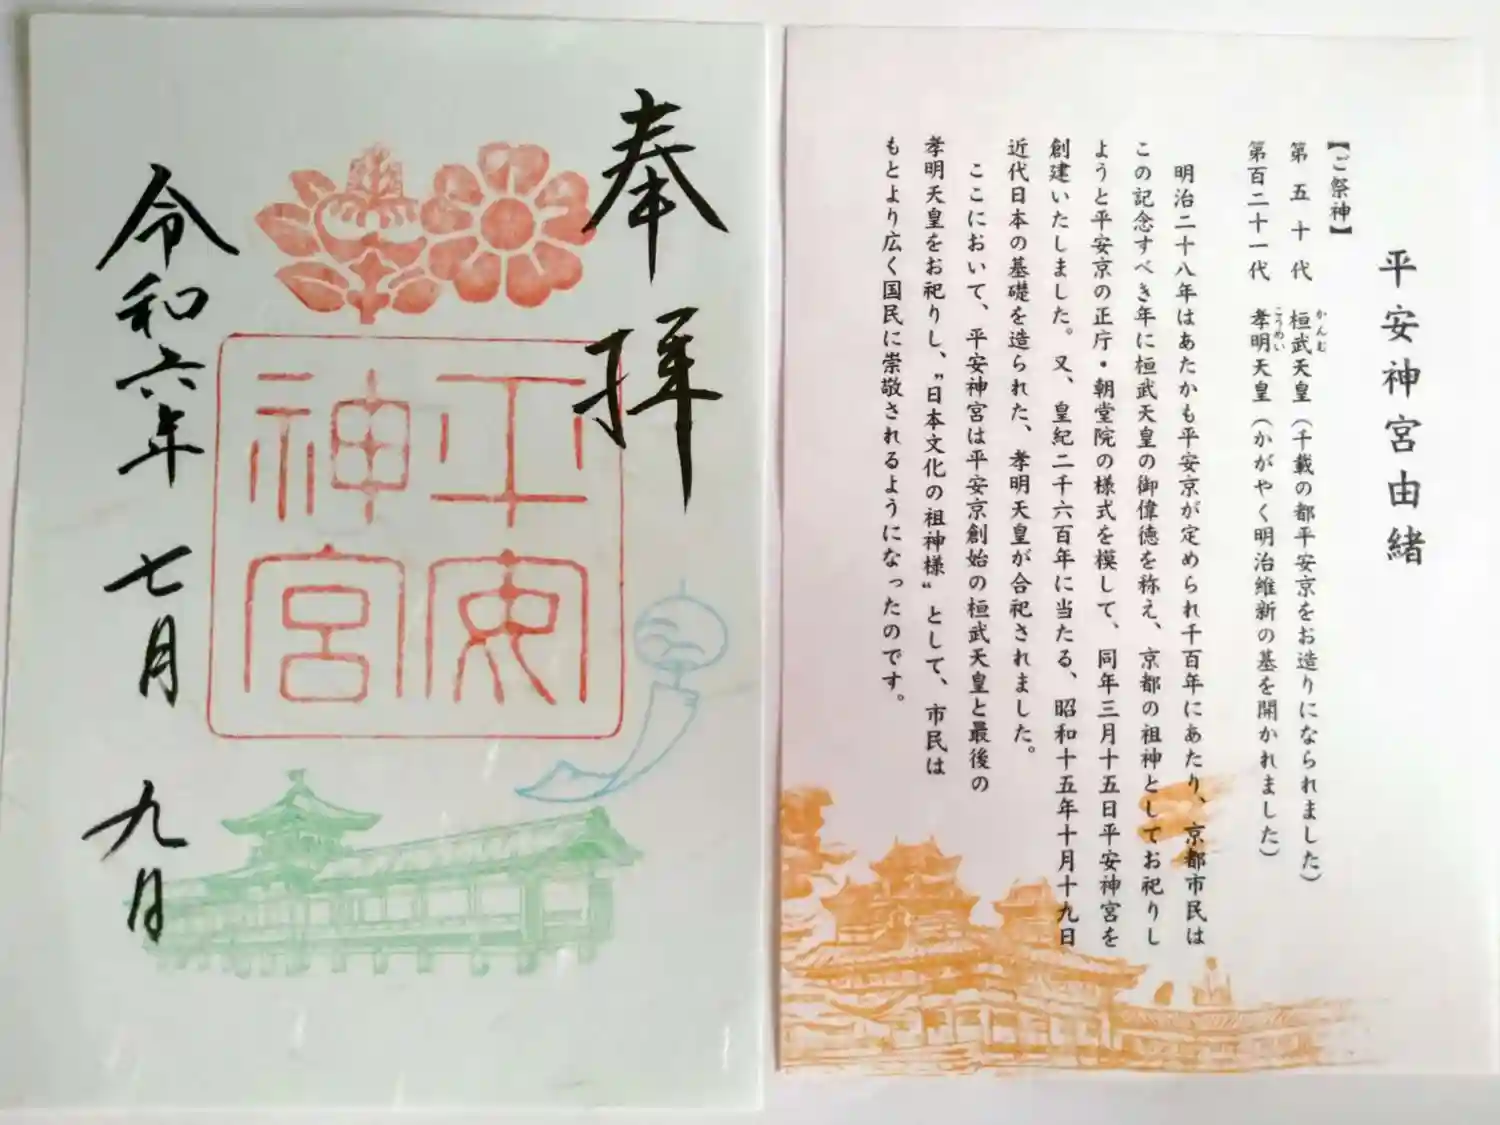 奉拝
平安神宮
令和六年 七月 九日
平安神宮由緒
【ご祭神】
第五十代 桓武天皇(千載の都平安京をお造りになられました)
かんむ
第百二十一代 孝明天皇(かがやく明治維新の基を開かれました)
こうめい
明治二十八年はあたかも平安京が定められ千百年にあたり、京都市民は
この記念すべき年に桓武天皇の御偉徳を称え、京都の祖神としてお祀りし
ようと平安京の正庁・朝堂院の様式を模して、同年三月十五日平安神宮を
創建いたしました。又、皇紀二千六百年に当たる、昭和十五年十月十九日
近代日本の基礎を造られた、孝明天皇が合祀されました。
ここにおいて、平安神宮は平安京創始の桓武天皇と最後の
孝明天皇をお祀りし、〝日本文化の祖神様〟として、市民は
もとより広く国民に崇敬されるようになったのです。